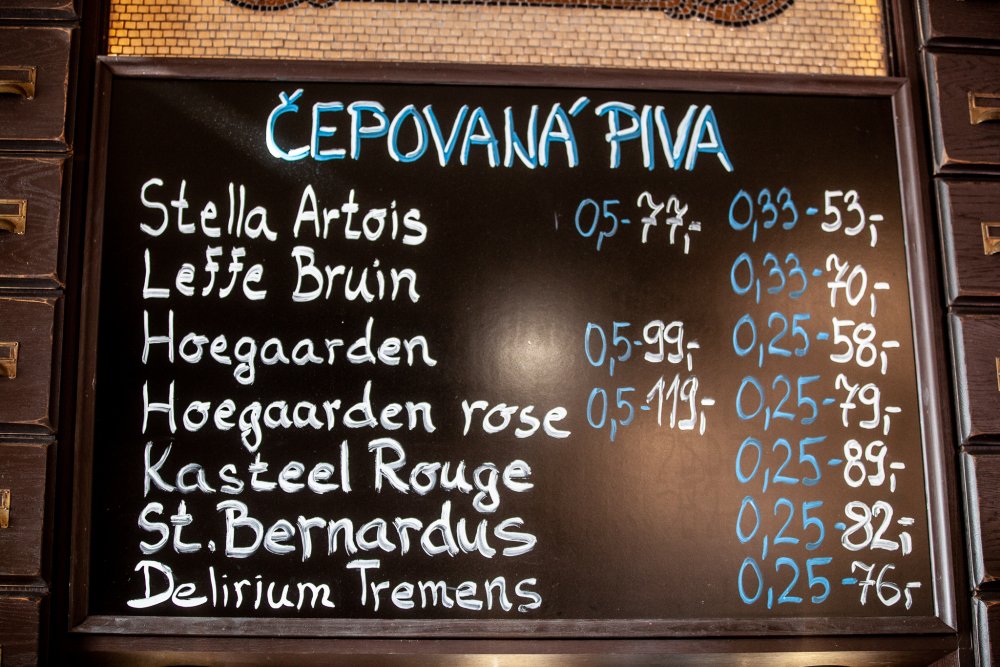 ČEPOVANÁ PIVA
Stella Artois 0,5-77,- 0,33-53,-
Leffe Bruin 0,33-70,-
Hoegaarden 0,5-99,- 0,25-58,-
Hoegaarden rose 0,5-119,- 0,25-79,-
Kasteel Rouge 0,25-89,-
St. Bernardus 0,25-82,-
Delirium Tremens 0,25-76,-